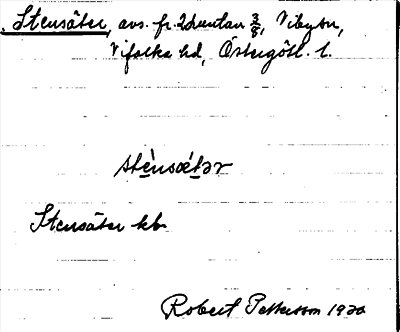 Stensäter, avs. fr. 3/8, Viby sn,
Vifolka hd, Östergötl. l.
stènsǽtər
Stensäter kb
Robert Pettersson 1920